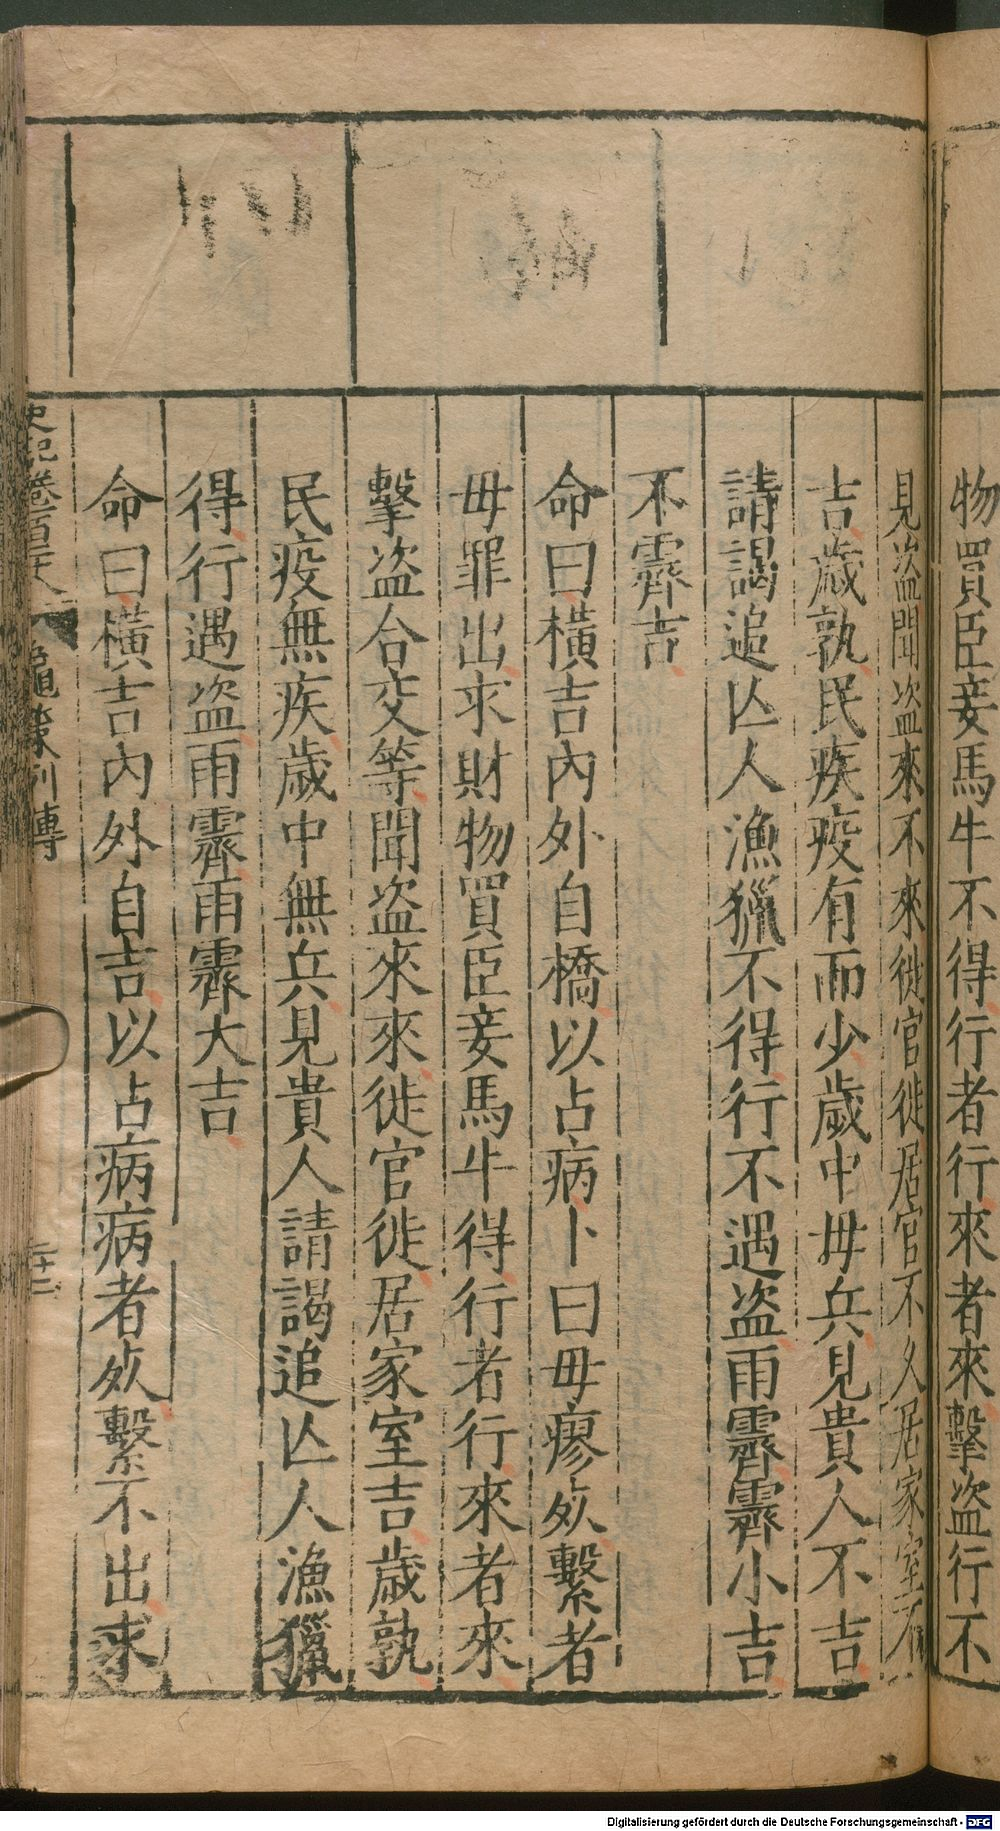 物買臣妾馬牛不得行者行來者來擊盜行不
見盜聞盜來不來徙官徙居官不久居家室不
吉歲孰民疾疫有而少歲中毋兵見貴人不吉
請謁追亾人漁獵不得行不遇盜雨霽霽小吉
不霽吉
命曰橫吉內外自橋以占病卜曰毋瘳死繫者
毋罪出求財物買臣妾馬牛得行者行來者來
擊盜合交等聞盜來來徙官徙居家室吉歲孰
民疫無疾歲中無兵見貴人請謁追亾人漁獵
得行遇盜雨霽雨霽大吉
命曰橫吉內外自吉以占病病者死繫不出求
史記卷百二十八 龜策列傳 二十二
Digitalisierung gefördert durch die Deutsche Forschungsgemeinschaft - DFG